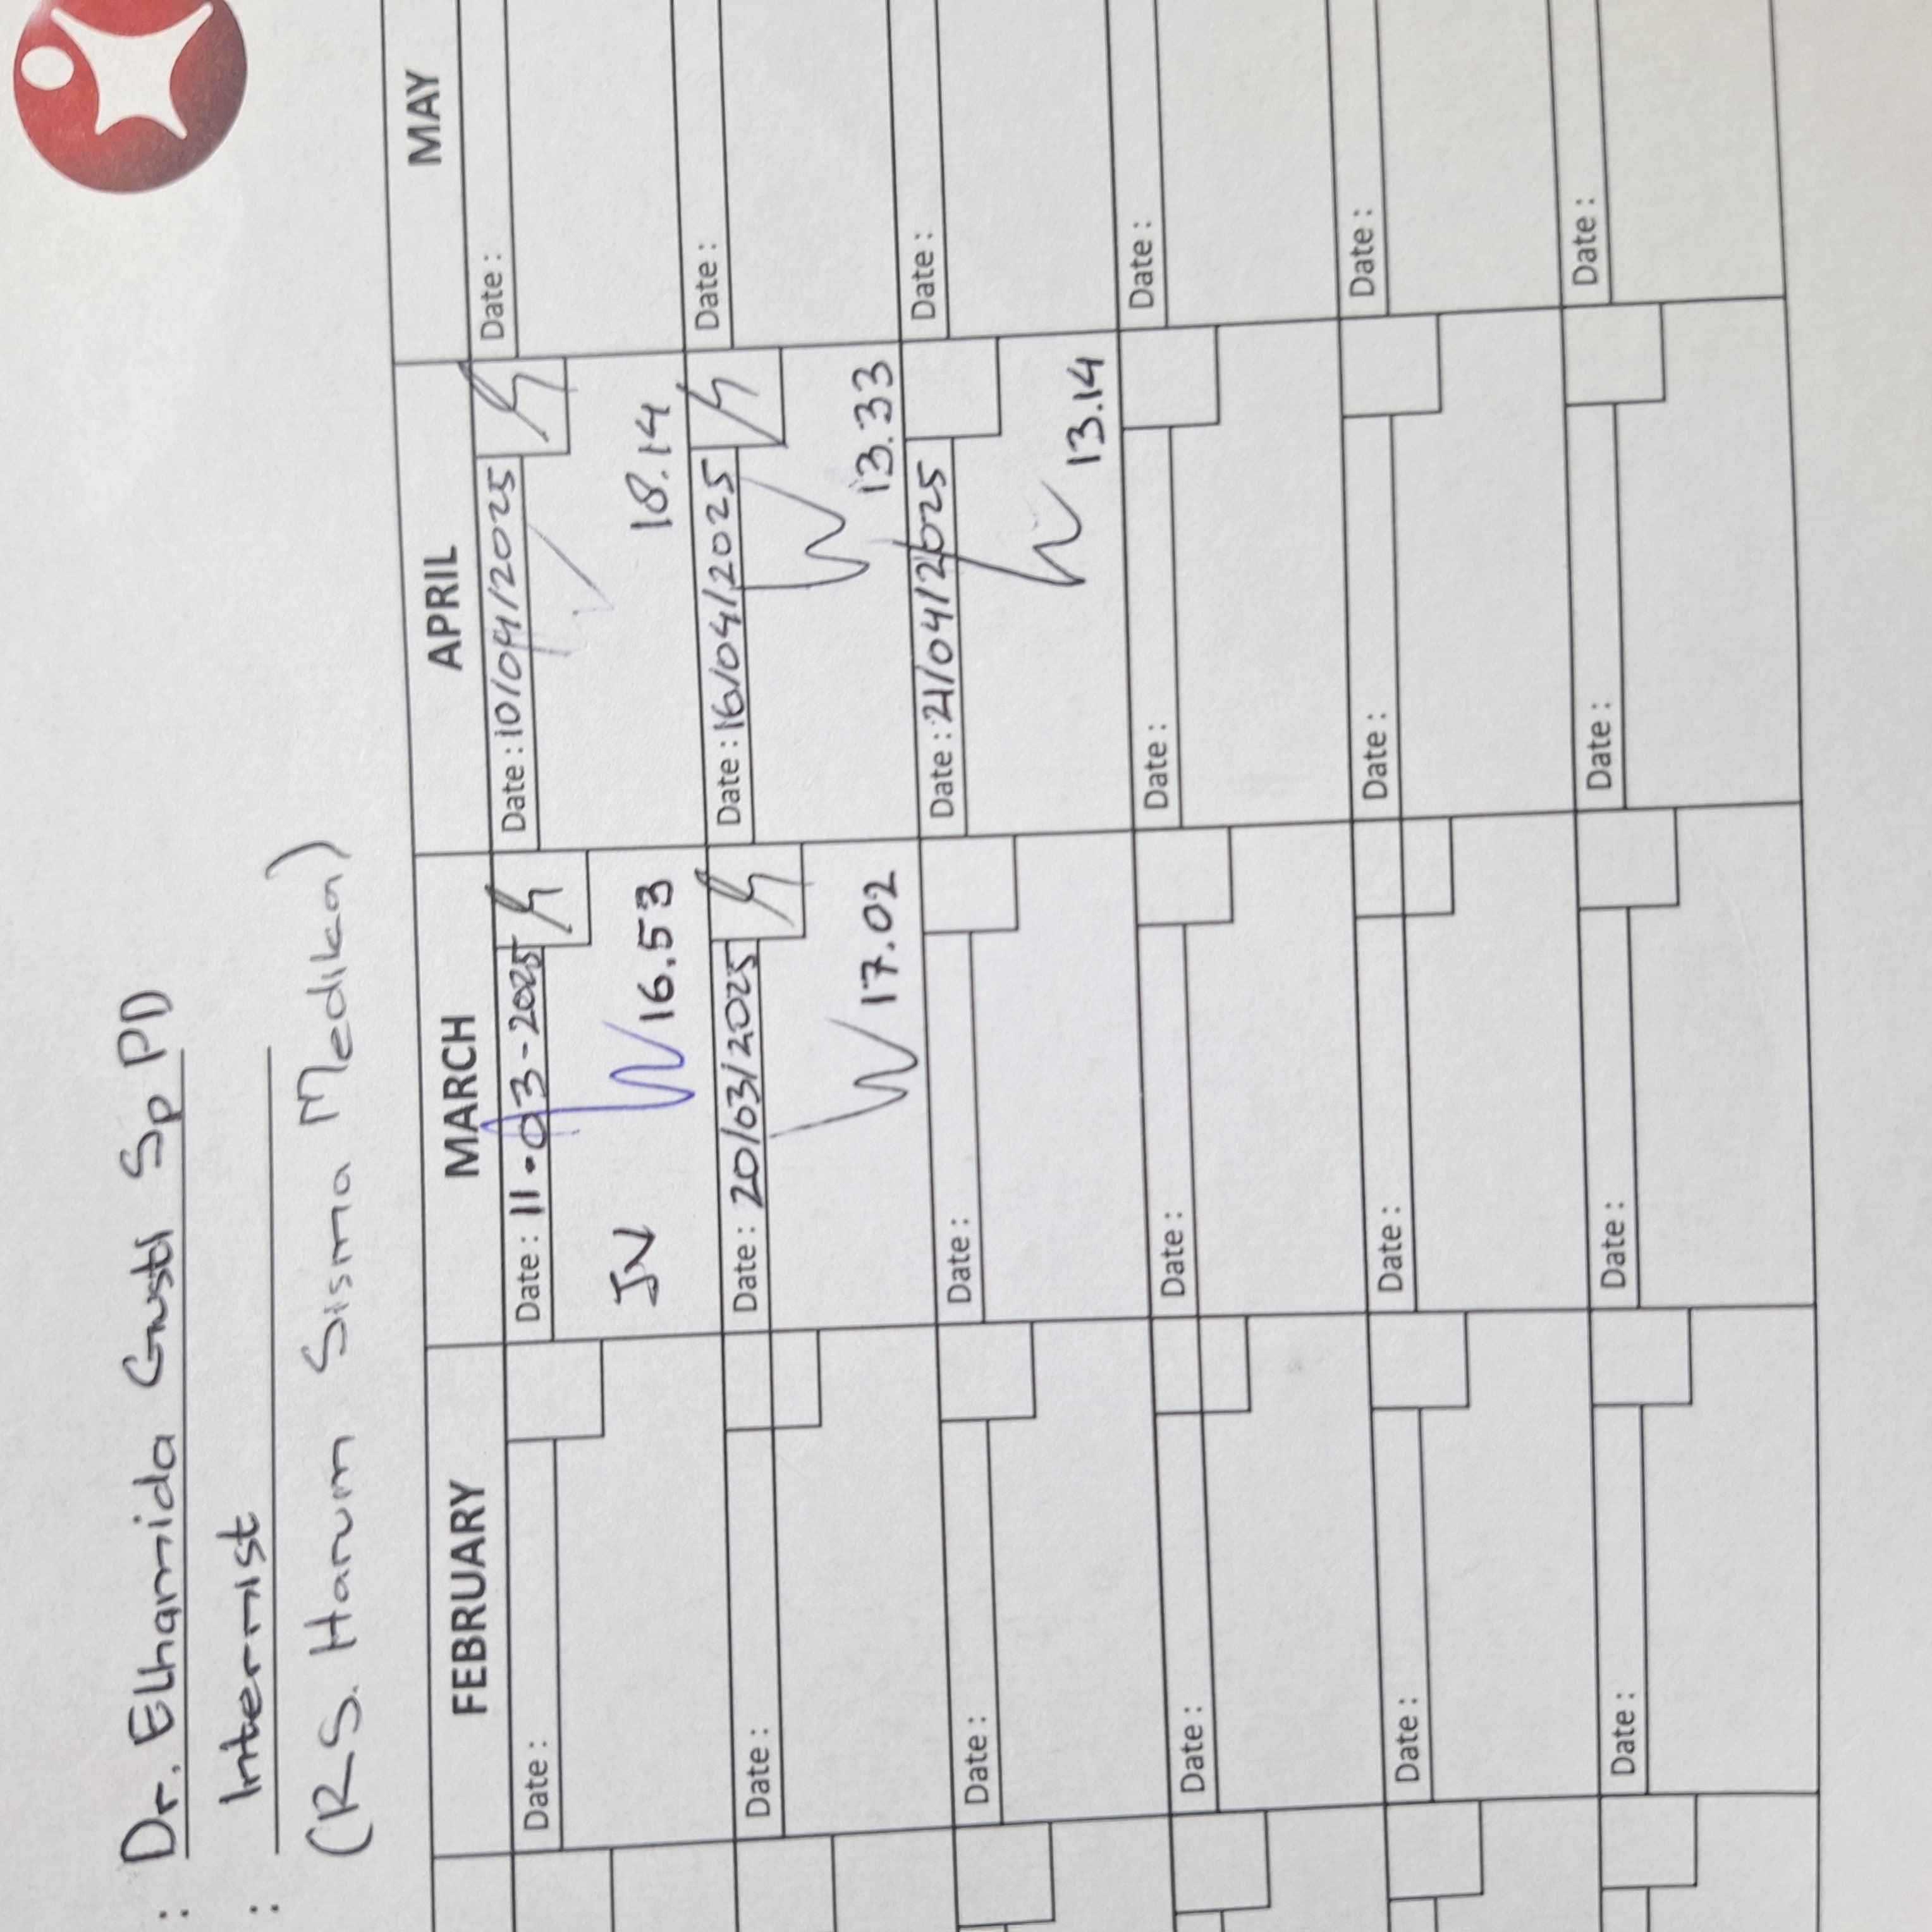 : Dr. Elhamida Gusti Sp PD
: Internist
(RS. Harum Sisma Medika)
FEBRUARY MARCH APRIL MAY
Date : Date : 11-03-2025 Date : 10/04/2025 Date :
JN 16.53 18.14
Date : Date : 20/03/2025 Date : 16/04/2025 Date :
17.02 13.33
Date : Date : Date : 21/04/2025 Date :
13.14
Date : Date : Date : Date :
Date : Date : Date : Date :
Date : Date : Date : Date :